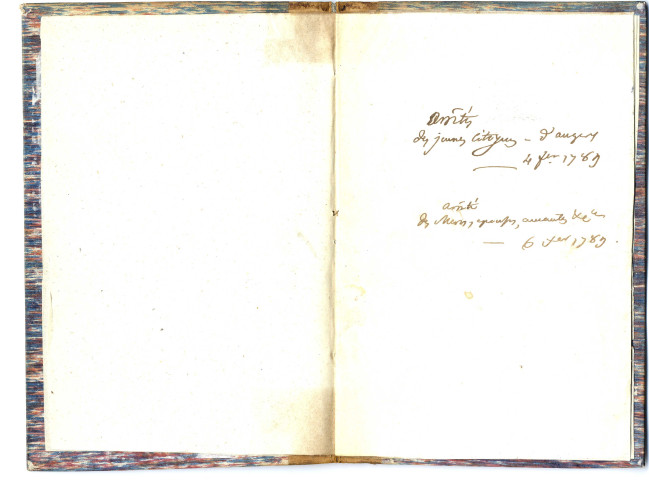 Arrêtés
des jeunes Citoyens – d'angers
4 fer 1789
arrêté
des Meres, epouses, amantes &ca
6 fer 1789.